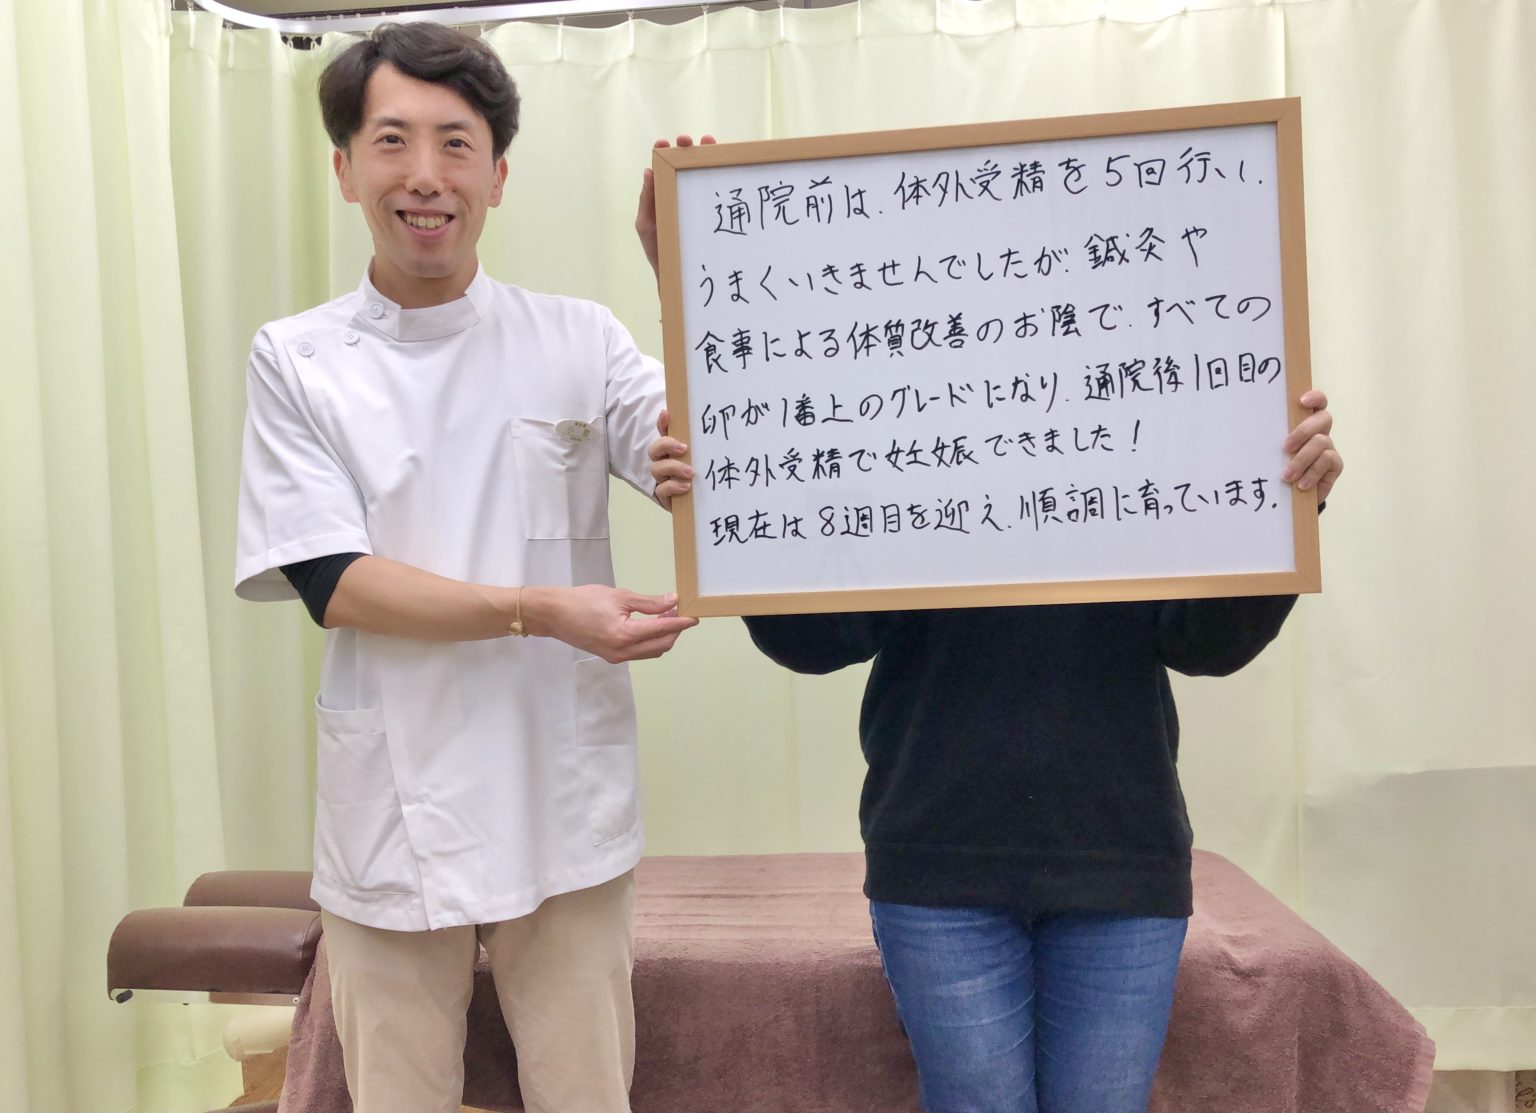 通院前は、体外受精を5回行い、
うまくいきませんでしたが、鍼灸や
食事による体質改善のお陰で、すべての
卵が1番上のグレードになり、通院後1回目の
体外受精で妊娠できました!
現在は8週目を迎え、順調に育っています。